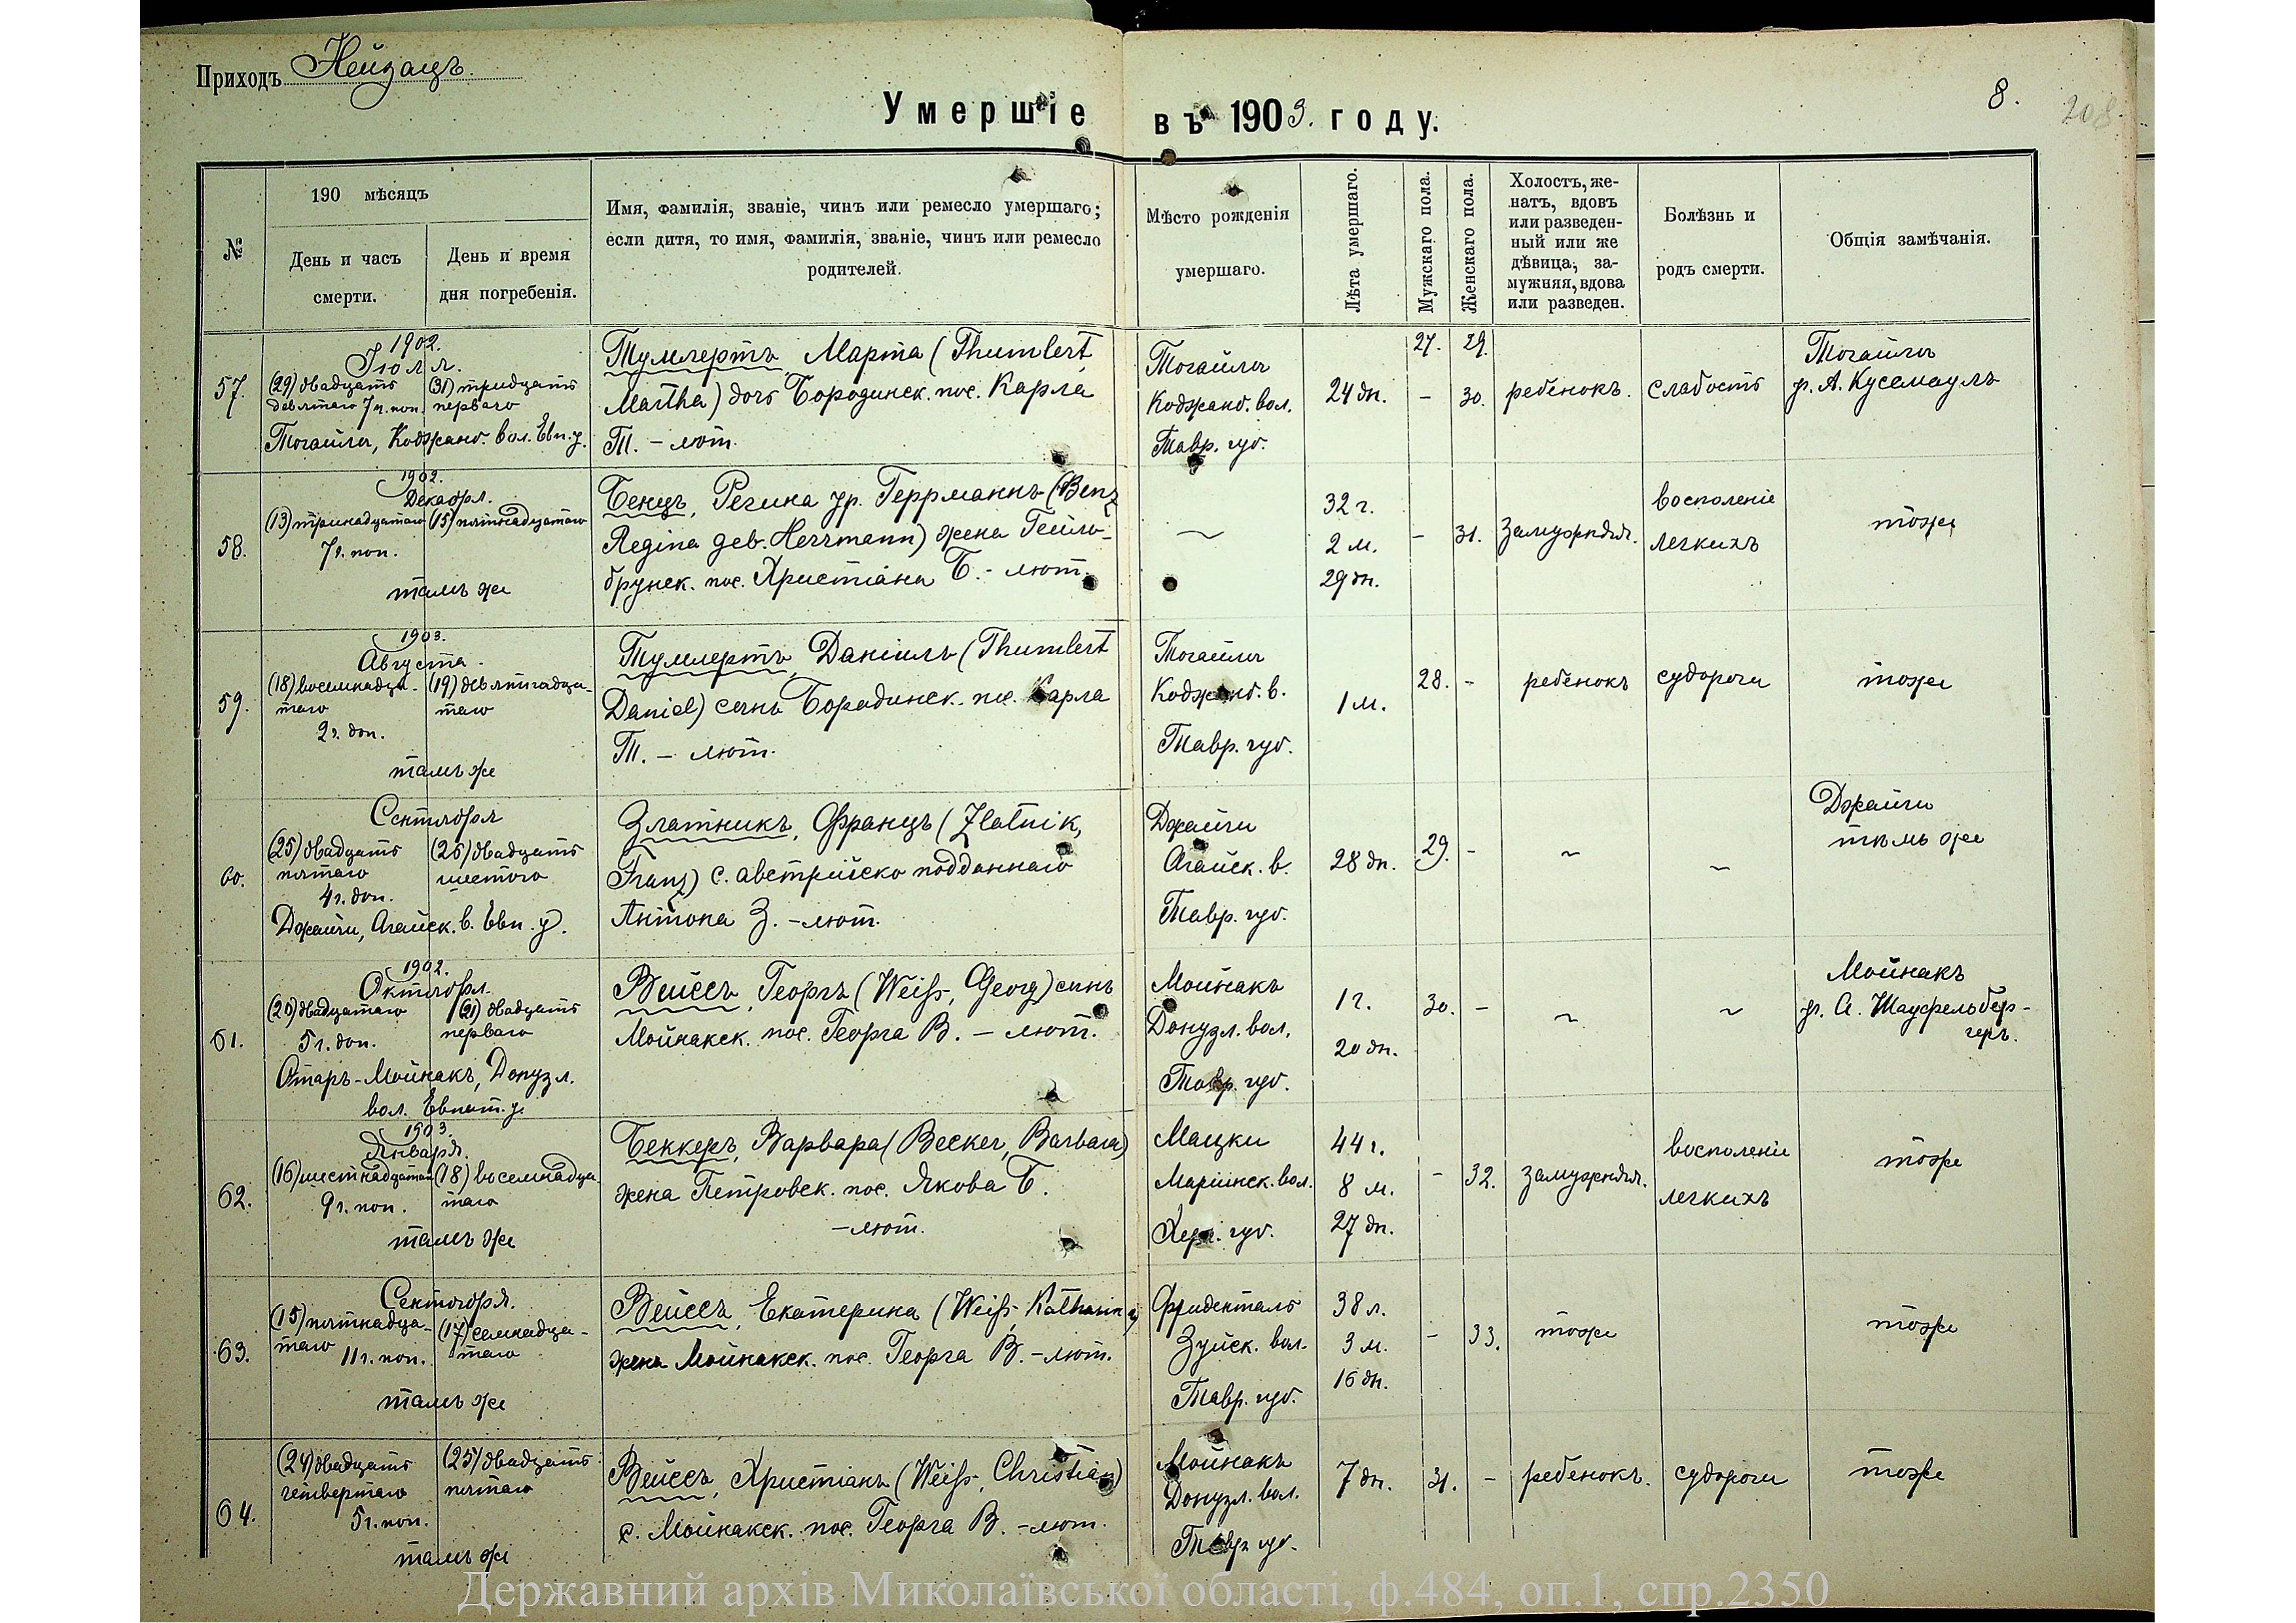 Приходъ Нейзацъ.
8.
208
Умершіе въ 1903. году.
№
190 мѣсяцъ
День и часъ
смерти.
День и время
дня погребенія.
Имя, фамилія, званіе, чинъ или ремесло умершаго;
если дитя, то имя, фамилія, званіе, чинъ или ремесло
родителей.
Мѣсто рожденія
умершаго.
Лѣта умершаго.
Мужскаго пола.
Женскаго пола.
Холостъ, же-
натъ, вдовъ
или разведен-
ный или же
дѣвица, за-
мужняя, вдова
или разведен.
Болѣзнь и
родъ смерти.
Общія замѣчанія.
57.
1902.
Іюля.
(29) двадцать
девятаго 7 ч. поп.
(31) тридцать
перваго
Тогайлы, Коджанб. вол. Евп. у.
Тумлертъ, Марта (Thumlert,
Martha) дочь Бородинск. пос. Карла
Т. – лют.
Тогайлы
Коджанб. вол.
Тавр. губ.
24 дн.
27. 29.
– 30.
ребенокъ.
слабость
Тогайлы
ф. А. Куссмауль
58.
1902.
Декабря.
(13) тринадцатаго
7 ч. поп.
(15) пятнадцатаго
тамъ же
Бенцъ, Регина ур. Геррманнъ (Benz
Regina geb. Herrmann) жена Гейль-
брунск. пос. Христіана Б. – лют.
~
32 г.
2 м.
29 дн.
– 31.
замужняя.
воспаленіе
легкихъ
тоже
59.
1903.
Августа.
(18) восемнадца-
таго
2 ч. доп.
(19) девятнадца-
таго
тамъ же
Тумлертъ, Даніилъ (Thumlert
Daniel) сынъ Бородинск. пос. Карла
Т. – лют.
Тогайлы
Коджанб. в.
Тавр. губ.
1 м.
28. –
ребенокъ
судороги
тоже
60.
Сентября
(25) двадцать
пятаго
4 ч. доп.
(26) двадцать
шестого
Джайчи, Агайск. в. Евп. у.
Златникъ, Францъ (Zlatnik,
Franz) с. австрійско подданнаго
Антона З. – лют.
Джайчи
Агайск. в.
Тавр. губ.
28 дн.
29. –
~
~
Джайчи
тамъ же
61.
1902.
Октября.
(20) двадцатаго
5 ч. доп.
(21) двадцать
перваго
Отаръ-Мойнакъ, Донузл.
вол. Евпат. у.
Вейссъ, Георгъ (Weiß, Georg) сынъ
Мойнакск. пос. Георга В. – лют.
Мойнакъ
Донузл. вол.
Тавр. губ.
1 г.
20 дн.
30. –
~
~
Мойнакъ
ф. А. Шауфельбер-
геръ.
62.
1903.
Января.
(16) шестнадцатаго
9 ч. поп.
(18) восемнадца
таго
тамъ же
Беккеръ, Варвара (Becker, Barbara)
жена Петровск. пос. Якова Б.
– лют.
Мацки
Маріинск. вол.
Хер. губ.
44 г.
8 м.
27 дн.
– 32.
замужняя.
воспаленіе
легкихъ
тоже
63.
Сентября.
(15) пятнадца-
таго 11 ч. поп.
(17) семнадца-
таго
тамъ же
Вейссъ, Екатерина (Weiß, Katharina)
жена Мойнакск. пос. Георга В. – лют.
Фриденталь
Зуйск. вол.
Тавр. губ.
38 л.
3 м.
16 дн.
– 33.
тоже
тоже
64.
(24) двадцать
четвертаго
5 ч. поп.
(25) двадцать
пятаго
тамъ же
Вейссъ, Христіанъ (Weiß, Christian)
с. Мойнакск. пос. Георга В. – лют.
Мойнакъ
Донузл. вол.
Тавр. губ.
7 дн.
31. –
ребенокъ.
судороги
тоже
Державний архів Миколаївської області, ф.484, оп.1, спр.2350